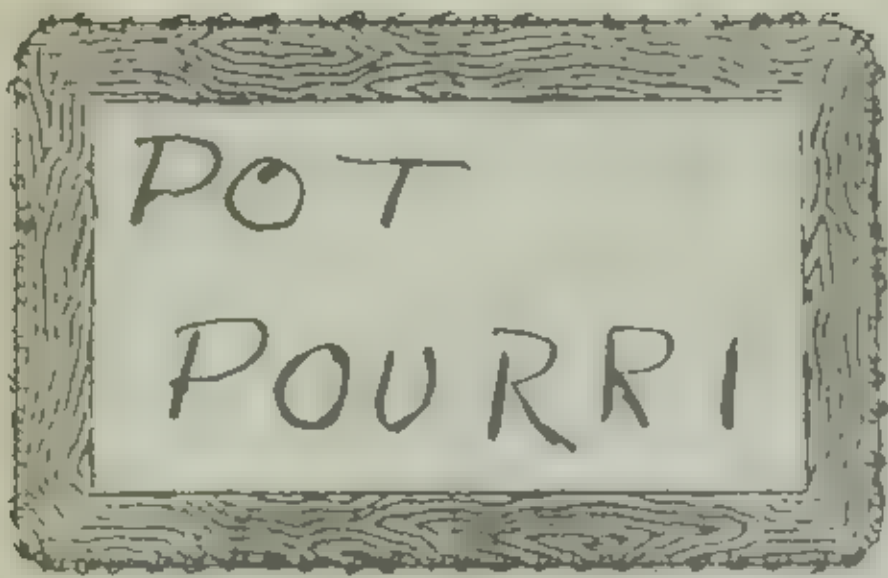 POT
POURRI